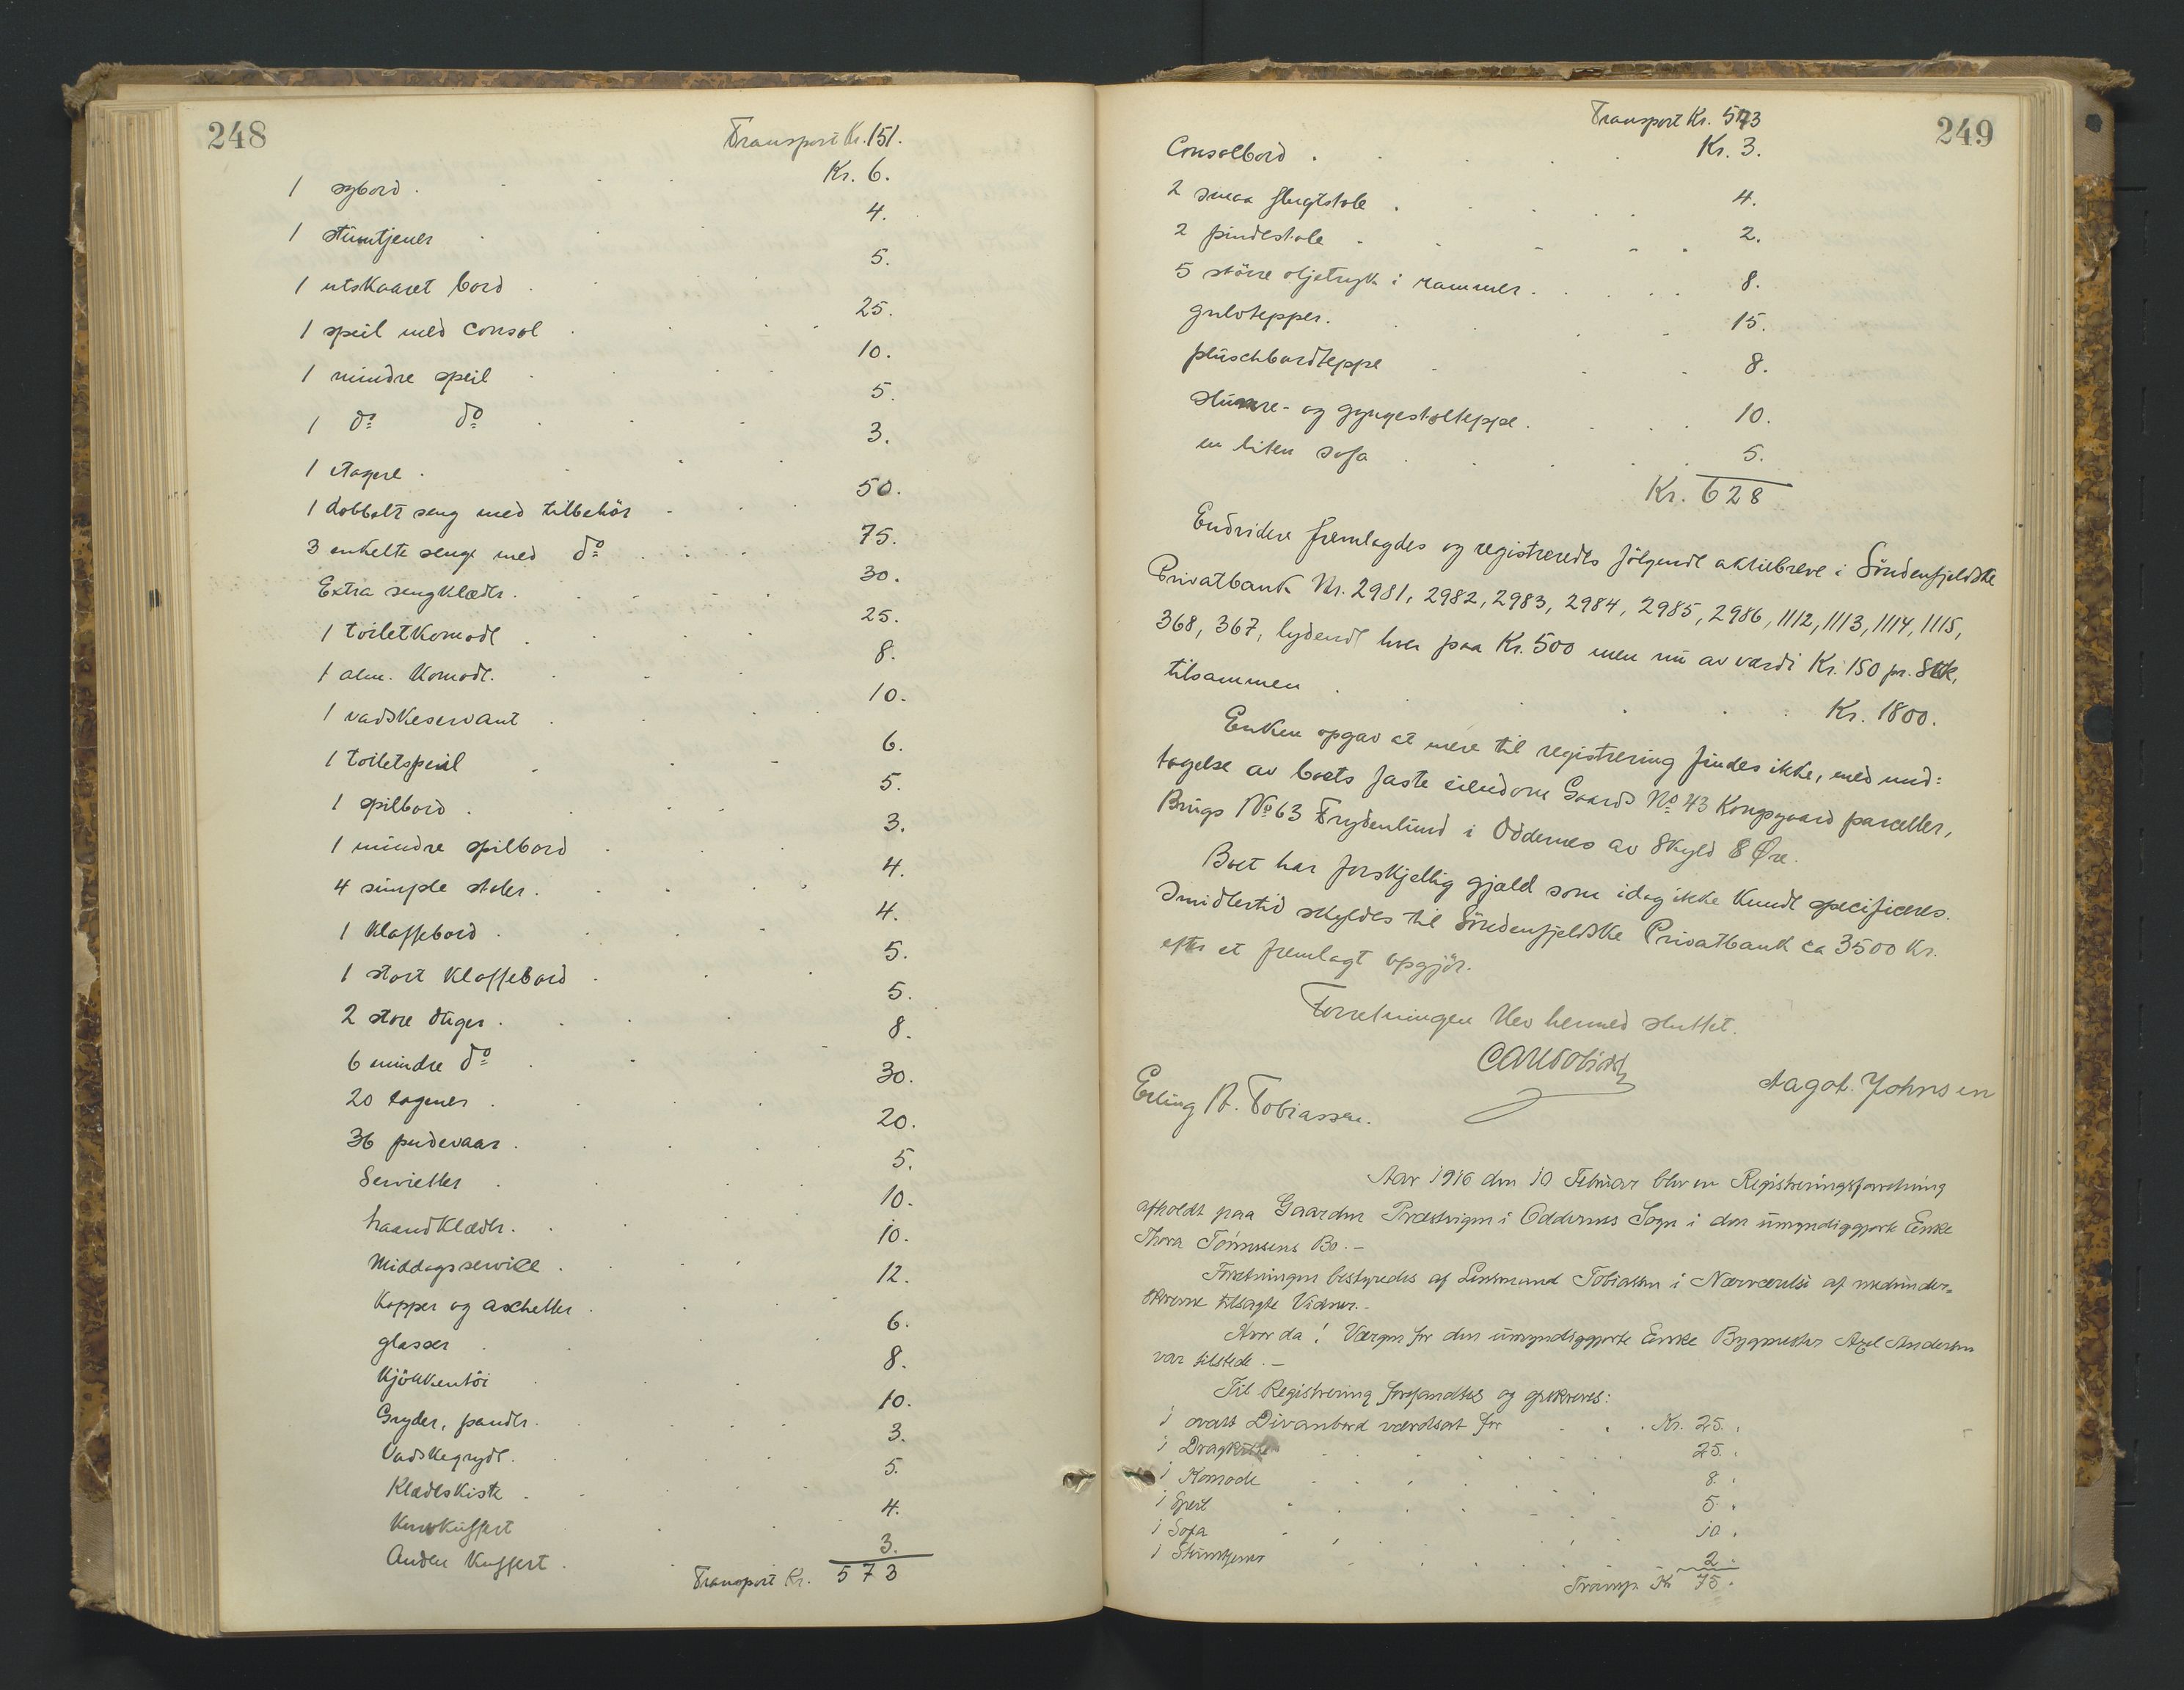 248
Transport Kr. 151.
1 sybord . Kr. 6.
1 stumtjener 4.
1 utskaaret bord 5.
1 speil med consol 25.
1 mindre speil 10.
1 do do 5.
1 etagere 3.
1 dobbelt seng med tilbehör 50.
3 enkelte senge med do 75.
Extra sengklæder. 30.
1 toiletkomode 25.
1 alm. Komode. 8.
1 vadskeservant 10.
1 toiletspeil 6.
1 spilbord. 5.
1 mindre spilbord 3.
4 simple stoler. 4.
1 Klaffebord 4.
1 stort Klaffebord 5.
2 store duger. 5.
6 mindre do 8.
20 lagener 30.
36 pudevaar. 20.
Servietter 5.
haandklæder. 10.
Middagsservice 10.
Kopper og ascheller 12.
glasser 6.
Kjökkentöi 8.
Gryder, pander. 10.
Vadskegryde. 3.
Klædeskiste 5.
Kurvkuffert 4.
Anden Kuffert 3.
Transport Kr. 573
249
Transport Kr. 573
Consolbord . Kr. 3.
2 smaa flugtstole . 4.
2 pindestole 2.
5 större oljetryk i rammer. 8.
gulvtepper. 15.
plüschbordteppe 8.
slumre- og gyngestolteppe. 10.
en liten sofa 5.
Kr. 628
Endvidere fremlagdes og registreredes fölgende aktiebreve i Söndenfjeldske
Privatbank Nr. 2981, 2982, 2983, 2984, 2985, 2986, 1112, 1113, 1114, 1115,
368, 367, lydende hver paa Kr. 500 men nu av værdi Kr. 150 pr. Stk,
tilsammen Kr. 1800.
Enken opgav at mere til registrering findes ikke, med und:
tagelse av boets faste eiendom Gaards No 43 Kongsgaard parceller,
Brugs No 63 Frydenlund i Oddernes av Skyld 8 Øre.
Boet har forskjellig gjæld som idag ikke kunde specificeres.
Imidlertid skyldes til Söndenfjeldske Privatbank ca 3500 Kr.
efter et fremlagt opgjör.
Forretningen blev hermed sluttet.
Erling A. Tobiassen. Aagot Johnsen
Aar 1916 den 10 Februar blev en Registreringsforretning
afholdt paa Gaarden Præstvigen i Oddernes Sogn i den umyndiggjorte Enke
Thora Tönnesens Bo. -
Forretningen bestyredes af Lensmand Tobiassen i Nærværelse af medunder-
skrevne tilsagte Vidner. -
Hvor da! Værgen for den umyndiggjorte Enke Bygmester Axel Andersen
var tilstede. -
Til Registrering forefandtes og opskreves:
1 ovalt Divanbord værdsat for Kr. 25.
1 Dragkiste 25.
1 Komode 8.
1 Speil 5.
1 Sofa 10.
1 Stumtjener 2.
Transp. Kr 75.